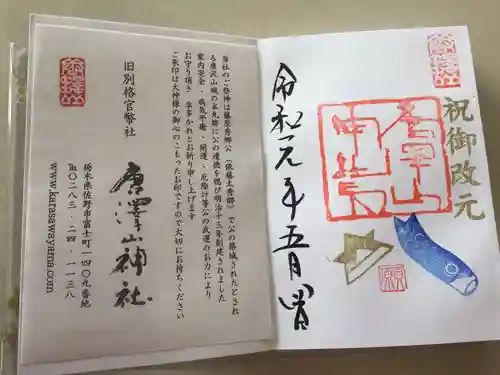 祝御改元
令和元年五月四日
当社のご祭神は藤原秀郷公（俵藤太秀郷）で公の築城されたとされ
る唐沢山城の本丸跡に公の遺徳を偲び明治十六年創建されました
家内安全・病気平癒・開運・厄除け等公の武運のお力により
お守り頂き、幸多かれとお祈り申し上げます
ご朱印は大神様の御心のこもったお印ですので大切にお持ちください
旧別格官幣社
唐澤山神社
栃木県佐野市富士町一四〇九番地
℡〇二八三・二四・一一三八
www.karasawayama.com